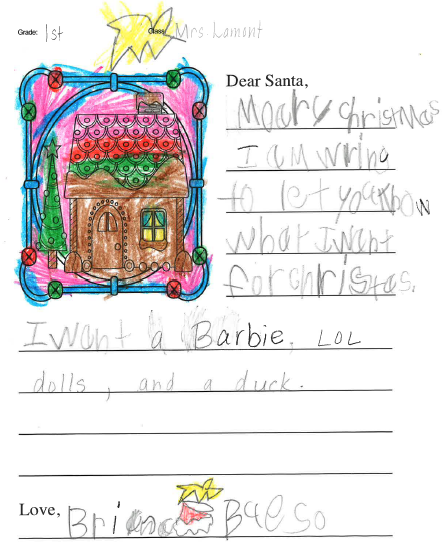 Grade: 1st Class Mrs. Lamont
Dear Santa,
Moary christmas
I am wring
to let you know
what I want
for christas.
I want a Barbie, LOL
dolls, and a duck.
Love, Baeso